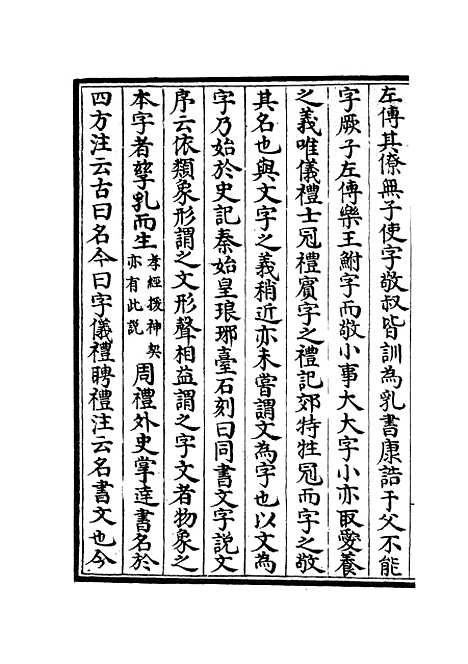 左傳其僚無子使字敬叔皆訓為乳書康誥于父不能
字厥子左傳樂王鮒字而敬小事大大字小亦取愛養
之義唯儀禮士冠禮賓字之禮記郊特牲冠而字之敬
其名也與文字之義稍近亦未嘗謂文為字也以文為
字乃始於史記秦始皇琅邪臺石刻曰同書文字説文
序云依類象形謂之文形聲相益謂之字文者物象之
本字者孳乳而生孝經援神契亦有此説周禮外史掌達書名於
四方注云古曰名今曰字儀禮聘禮注云名書文也今